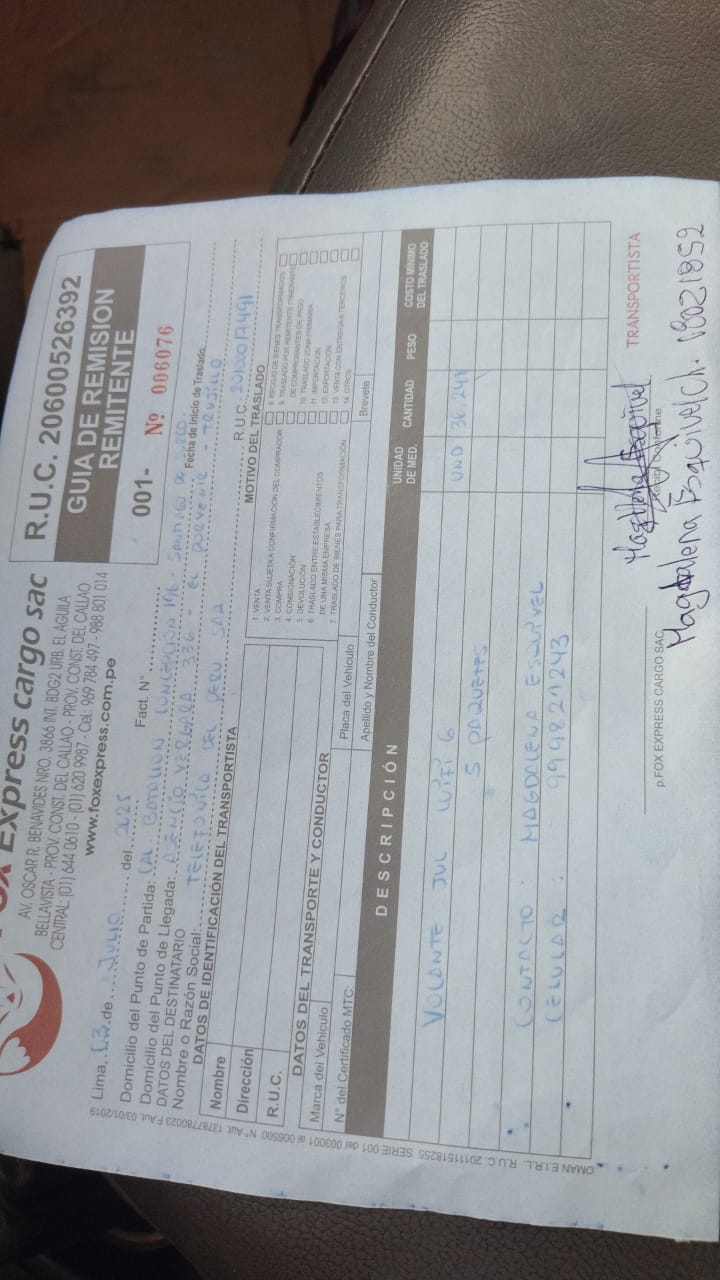 Express cargo sac
AV. OSCAR R. BENAVIDES NRO. 3866 INT. BDG2 URB. EL AGUILA
BELLAVISTA - PROV. CONST. DEL CALLAO - PROV. CONST. DEL CALLAO
CENTRAL: (01) 644 0610 - (01) 620 9987 - Cel.: 969 784 497 - 988 801 014
www.foxexpress.com.pe
R.U.C. 20600526392
GUIA DE REMISION
REMITENTE
001- Nº 006076
Lima, 03 de JULIO del 2025
Fact. N°
Domicilio del Punto de Partida: CAL BATALLON CONCEPCION
Fecha de Inicio de Traslado
Domicilio del Punto de Llegada: VERGARA 336 - EL PORVENIR - TRUJILLO
DATOS DEL DESTINATARIO
Nombre o Razón Social: TELEFONICA DEL PERU SAA R.U.C. 20100017491
DATOS DE IDENTIFICACIÓN DEL TRANSPORTISTA
Nombre
Dirección
R.U.C.
MOTIVO DEL TRASLADO
1. VENTA
2. VENTA SUJETA A CONFIRMACION DEL COMPRADOR
3. COMPRA
4. CONSIGNACIÓN
5. DEVOLUCIÓN
6. TRASLADO ENTRE ESTABLECIMIENTOS
DE UNA MISMA EMPRESA
7. TRASLADO DE BIENES PARA TRANSFORMACIÓN
8. RECOJO DE BIENES TRANSFORMADOS
9. TRASLADO POR REMITENTE ITINERANTE
DE COMPROBANTES DE PAGO
10. TRASLADO ZONA PRIMARIA
11. IMPORTACION
12. EXPORTACIÓN
13. VENTA CON ENTREGA A TERCEROS
14. OTROS
DATOS DEL TRANSPORTE Y CONDUCTOR
Marca del Vehículo
Placa del Vehículo
N° del Certificado MTC:
Apellido y Nombre del Conductor
Brevete
DESCRIPCIÓN UNIDAD DE MED. CANTIDAD PESO COSTO MINIMO DEL TRASLADO
VOLANTE JUL WIFI 6 UND 36.241
5 PAQUETES
CONTACTO: MAGDALENA ESQUIVEL
CELULAR: 999821243
p.FOX EXPRESS CARGO SAC
Magdalena Esquivel
TRANSPORTISTA
Magdalena Esquivel Ch. 18021852
OMAN E.I.R.L. R.U.C. 20111518255 SERIE 001 del 003001 al 006500 N° Aut. 13787780023 F.Aut. 03/01/2019